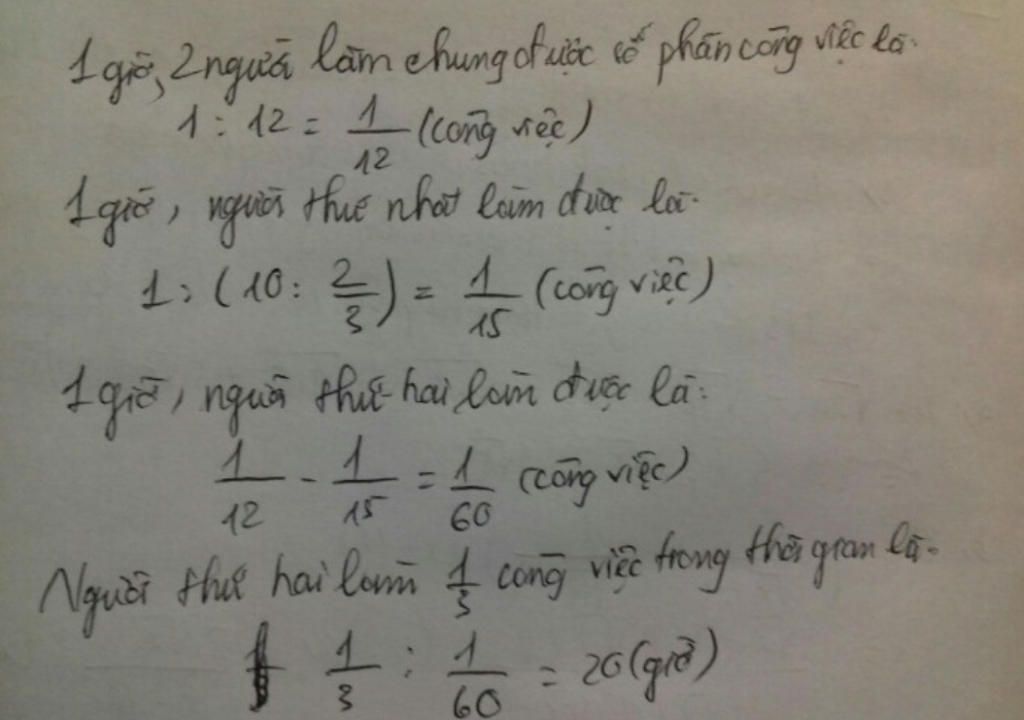 1 giờ, 2 người làm chung được số phần công việc là:
1 : 12 = 1/12 (công việc)
1 giờ, người thứ nhất làm được là:
1 : (10 : 2/3) = 1/15 (công việc)
1 giờ, người thứ hai làm được là:
1/12 - 1/15 = 1/60 (công việc)
Người thứ hai làm 1/3 công việc trong thời gian là:
1/3 : 1/60 = 20 (giờ)